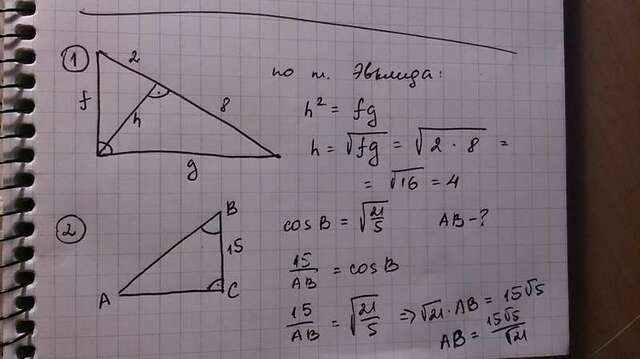 1
2
f
h
8
g
по т. Эвклида:
h² = fg
h = √fg = √2 · 8 =
= √16 = 4
2
B
15
A
C
cos B = √21/5 AB - ?
15/AB = cos B
15/AB = √21/5 ⇒ √21 · AB = 15√5
AB = 15√5/√21